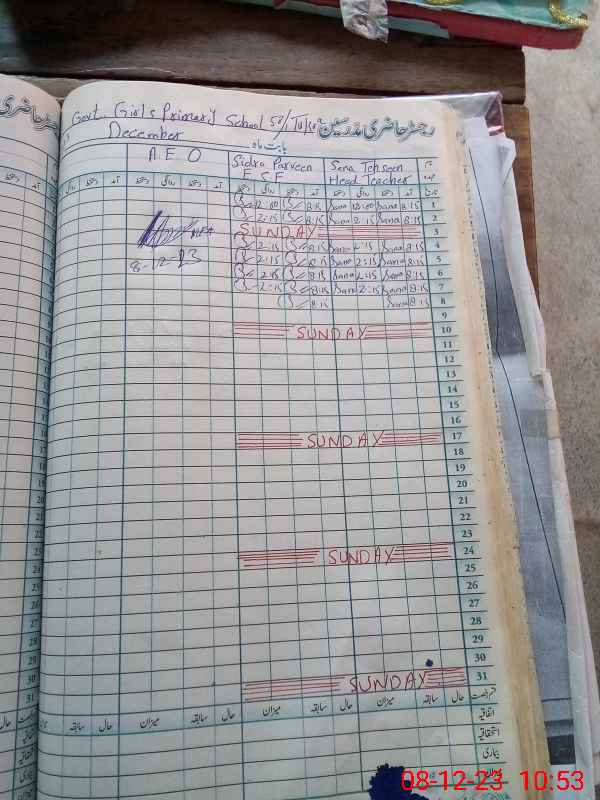 رجسٹر حاضری مدرسین
Govt. Girls Primary School 50/
December
بابت ماہ
A.E.O Sidra Parveen Sana Tehseen
E S E Head Teacher
آمد دستخط روانگی دستخط آمد دستخط روانگی دستخط آمد دستخط روانگی دستخط تاریخ
12:00 8:15 Sana 12:00 Sana 8:15 1
2:15 8:15 Sana 2:15 Sana 8:15 2
SUNDAY 3
2:15 8:15 Sana 2:15 Sana 8:15 4
2:15 8:15 Sana 2:15 Sana 8:15 5
2:15 8:15 Sana 2:15 Sana 8:15 6
2:15 8:15 Sana 2:15 Sana 8:15 7
8:15 Sana 8:15 8
8-12-23
9
SUNDAY 10
11
12
13
14
15
16
SUNDAY 17
18
19
20
21
22
23
SUNDAY 24
25
26
27
28
29
30
SUNDAY 31
حال سابقہ میزان حال سابقہ میزان حال سابقہ میزان حال سابقہ قسم رخصت
اتفاقیہ
استحقاقیہ
بیماری
08-12-23 10:53